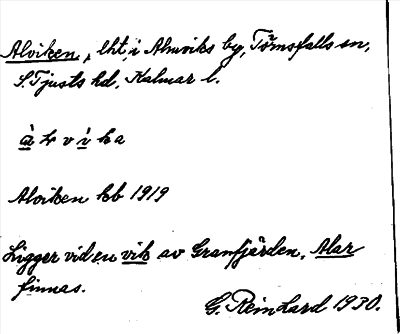 Alviken, lht, i Almviks by, Törnsfalls sn,
S. Tjusts hd, Kalmar l.
Alviken kb 1919
Ligger vid en vik av Granfjärden, Alar
finnas.
G. Reinhard 1930.